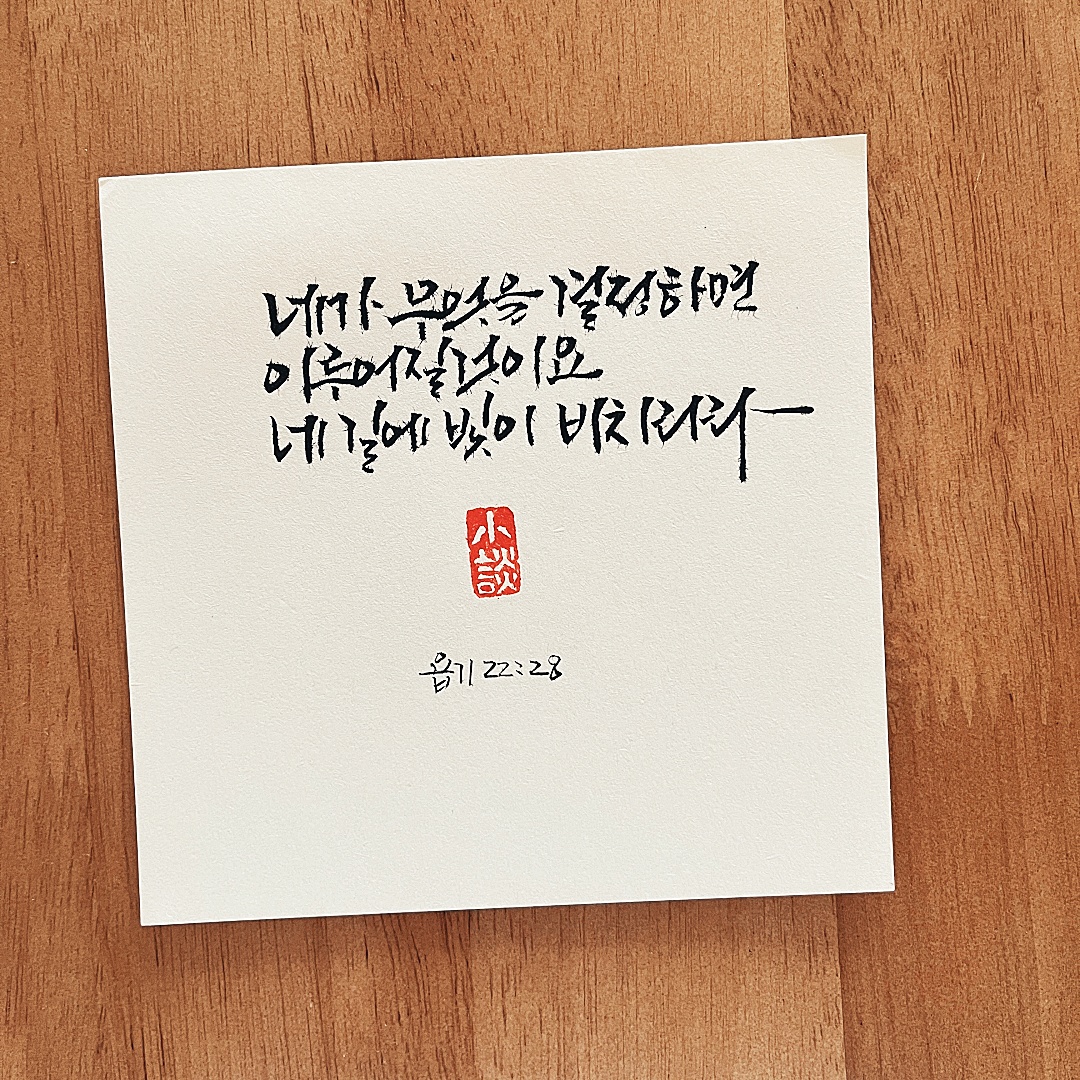 네가 무엇을 결정하면
이루어질것이요
네 길에 빛이 비치리라
小
談
욥기 22:28